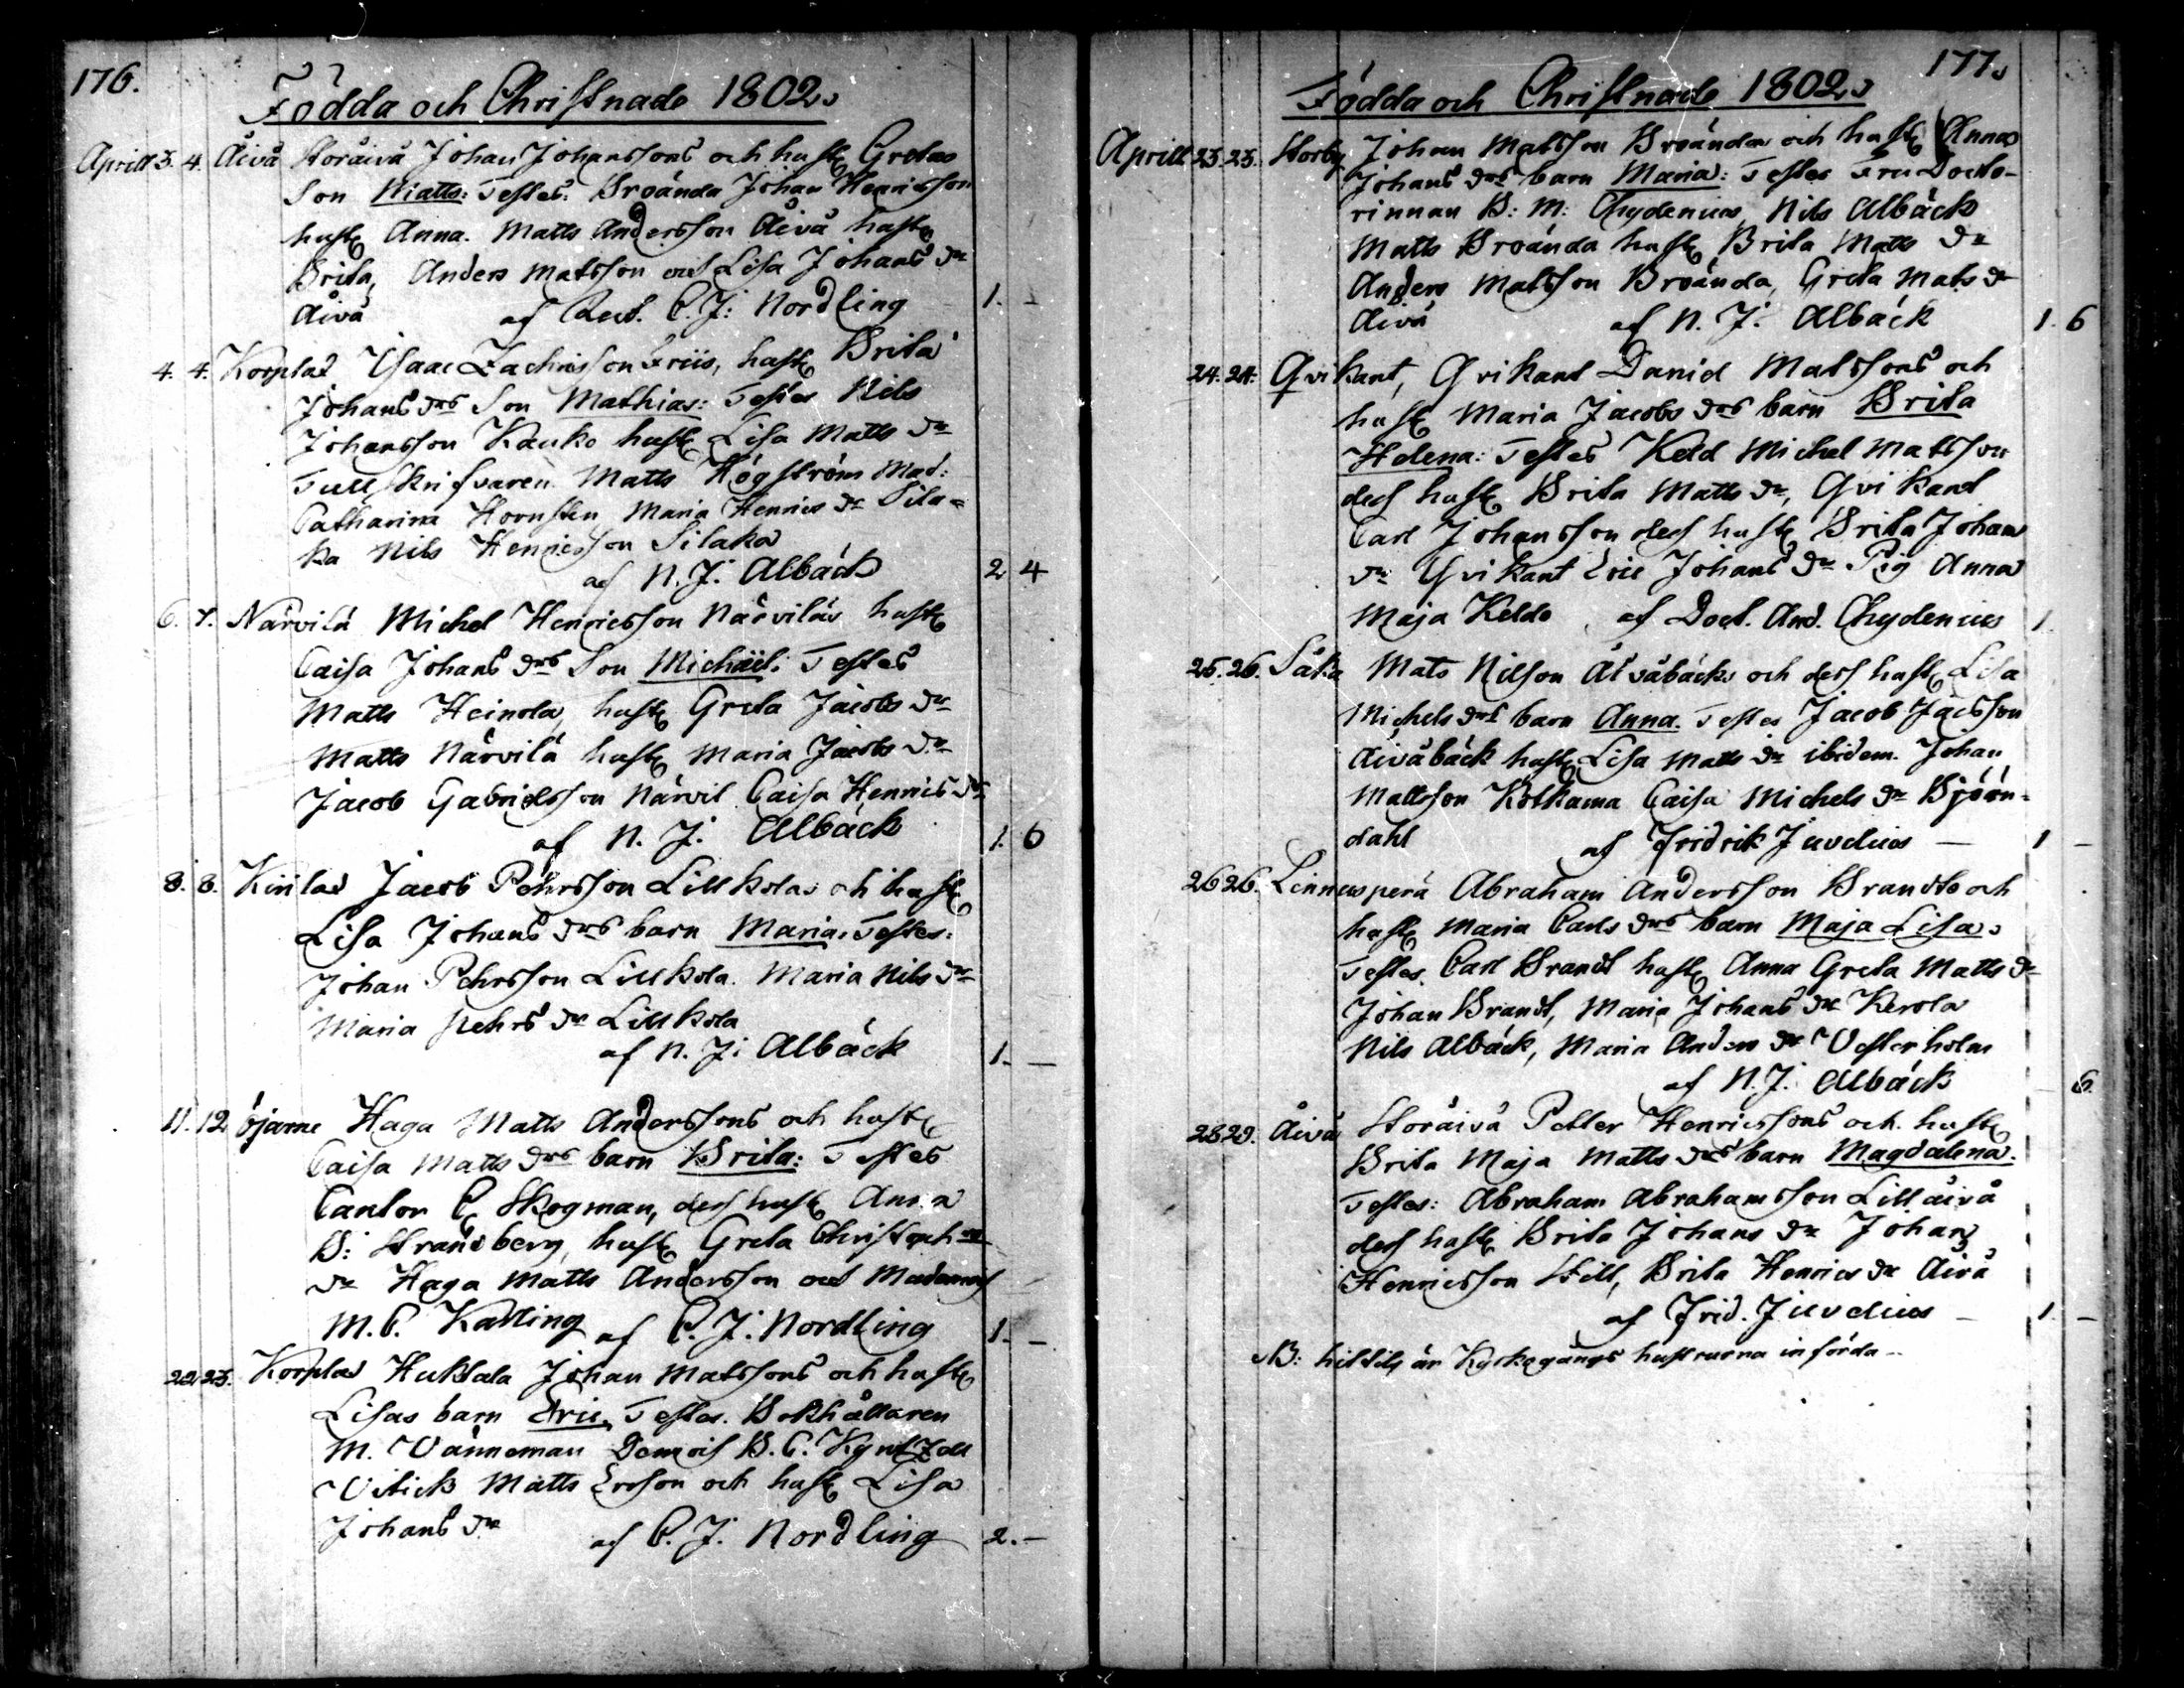 176.
Födda och Christnade 1802.
Aprill 3. 4. Åivå Storåivå Johan Johanssons och hust: Gretas
Son Matts: Testes: Broända Johan Henricsson
hust: Anna. Matts Andersson Åivå hust:
Brita, Anders Matsson och Lisa Johans dr
Åivå af C. J: Nordling 1. -
4. 4. Korplax Isaac Zachrisson Friis, hust: Brita
Johans drs Son Mathias: Testes Nils
Johansson Kauko hust: Lisa Matts dr
Tullskrifvaren Matts Högström Mad:
Catharina Hornsten, Maria Henrics dr Sila=
ka Nils Henricsson Silaka
af N. J. Albäck 2 4
6. 7. Närvilä Michel Henricsson Närviläs hust:
Caisa Johans drs Son Michäel: Testes
Matts Heinola, hust: Greta Jacobs dr
Matts Närvilä hust: Maria Jacobs dr
Jacob Gabrielsson Närvil Caisa Henrics dr
af N. J. Albäck 1. 6
8. 8. Kirilax Jacob Pehrsson Lillkolas och hust:
Lisa Johans drs barn Maria. Testes:
Johan Pehrsson Lillkola. Maria Nils dr
Maria Pehrs dr Lillkola
af N. J. Albäck 1. -
11. 12 Öjarne Haga Matts Anderssons och hust:
Caisa Matts drs barn Brita: Testes
Cantor C. Skogman, des hust: Anna
B: Strandberg, hust: Greta Christoph
dr Haga Matts Andersson och
M. C. Kalling af C. J. Nordling 1. -
22. 23. Korplax Huktala Johan Matssons och hust:
Lisas barn Eric. Testes. Bokhållaren
M. Vänneman Demois B. C. Kyntzell
Vitick Matts Ersson och hust: Lisa
Johans dr af C. J. Nordling 2. -
177.
Födda och Christnade 1802.
Aprill 23. 23. Storby Johan Matsson Broända och hust: Annas
Johans drs barn Maria: Testes Fru Docto-
rinnan B: M: Chydenius, Nils Albäck
Matts Broända hust: Brita Matts dr
Anders Matsson Broända, Greta Mats dr
Åivå af N. J. Albäck 1. 6
24. 24. Qvikant, Qvikant Daniel Matssons och
hust: Maria Jacobs drs barn Brita
Helena: Testes Keld Michel Matsson
des hust: Brita Matts dr, Qvikant
Carl Johansson des hust: Brita Johans
dr Qvikant Eric Johans dr Pig Anna
Maja Keldo af Doct. And. Chydenius 1.
25. 26. Såka Mats Nilson Åivåbäcks och des hust: Lisa
Michels drs barn Anna. Testes Jacob Jacsson
Åivåbäck hust: Lisa Matts dr ibidem. Johan
Mattsson Kotkama Caisa Michels dr Björn-
dahl af Fridrik Juvelius - 1 -
26 26. Linnusperä Abraham Andersson Brandts och
hust: Maria Carls drs barn Maja Lisa:
Testes. Carl Brandt hust: Anna Greta Matts dr
Johan Brandt, Maria Johans dr Kerola
Nils Albäck, Maria Anders dr Vesterholm
af N. J. Albäck 6.
28 29. Åivå Storåivå Petter Henricssons och hust:
Brita Maja Matts drs barn Magdalena.
Testes: Abraham Abrahamsson Lillåivå
des hust: Brita Johans dr Johan
Henricsson Still, Brita Henrics dr Åivå
af Frid. Juvelius - 1. -
NB: hittils är Kyrkogångs hustrurna införda -